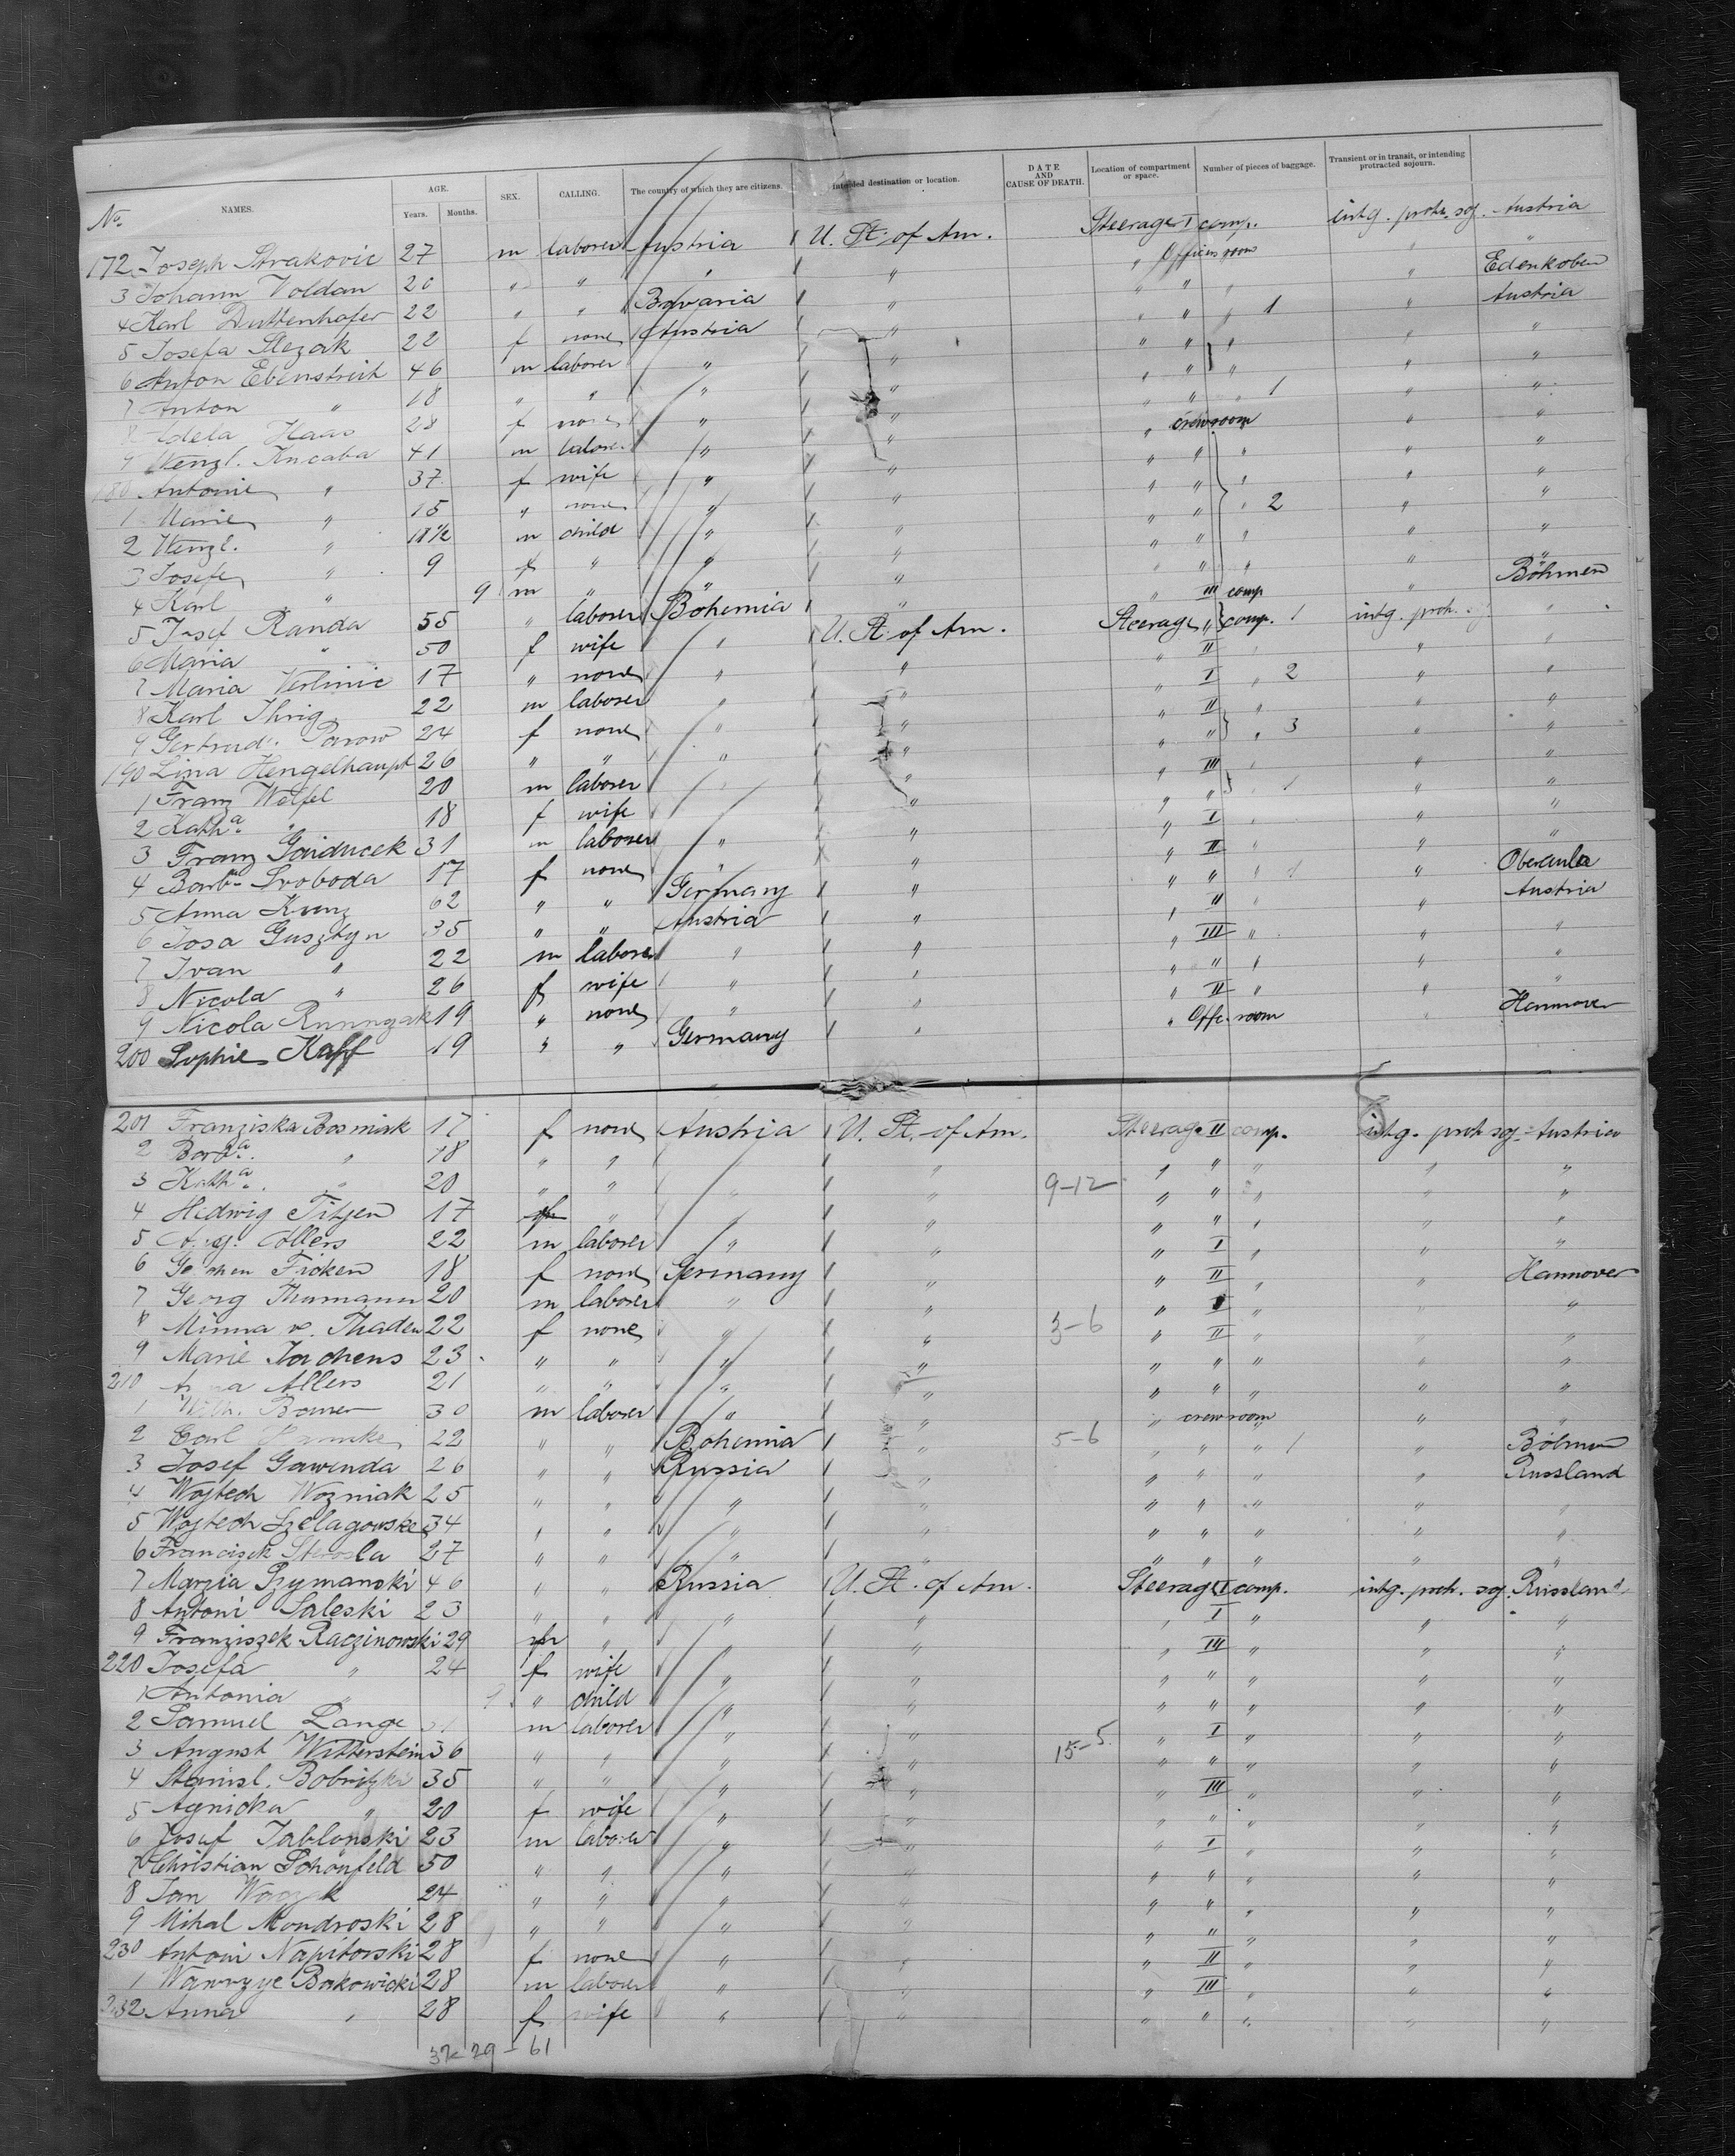 No. NAMES. AGE. Years. Months. SEX. CALLING. The country of which they are citizens. Intended destination or location. DATE AND CAUSE OF DEATH. Location of compartment or space. Number of pieces of baggage. Transient or in transit, or intending protracted sojourn.
172 Joseph Strakovic 27 m laborer Austria U. St. of Am. Steerage I comp. intg. protr. soj. Austria
3 Johann Voldan 20 " " " " " Officers room " "
4 Karl Duttenhofer 22 " " Bavaria " " " " " Edenkoben
5 Josefa Slezak 22 f none Austria " " " " 1 " Austria
6 Anton Ebenstreit 46 m laborer " " " " " " "
7 Anton " 18 " " " " " " " " "
8 Adela Haas 28 f none " " " " " 1 " "
9 Wenzl. Kucaba 41 m labore. " " " crew room " "
180 Antonie " 37 f wife " " " " " " "
1 Marie " 15 " none " " " " " " "
2 Wenzl. " 18½ m child " " " " " 2 " "
3 Josefe " 9 f " " " " " " " "
4 Karl " 9 m " " " " " " " "
5 Josef Randa 55 " laborer Bohemia " " III comp " Böhmen
6 Maria " 50 f wife " U. St. of Am. Steerage " comp. 1 intg. protr. "
7 Maria Verlinic 17 " none " " " II " " "
8 Karl Ihrig 22 m laborer " " " I " 2 " "
9 Gertrud. Parow 24 f none " " " II " " "
190 Lina Hengelhaupt 26 " " " " " " " 3 " "
1 Franz Welfel 20 m laborer " " " III " " "
2 Katha. " 18 f wife " " " " " 1 " "
3 Franz Gaiducek 31 m laborer " " " I " " "
4 Barb. Svoboda 17 f none " " " II " " "
5 Anna Kunz 62 " " Germany " " " " 1 " Oberaula
6 Josa Gusztyn 35 " " Austria " " II " " Austria
7 Ivan " 22 m laborer " " " III " " "
8 Nicola " 26 f wife " " " " " " "
9 Nicola Runnzak 19 " none " " " II " " "
200 Sophie Kaff 19 " " Germany " " Offc. room " Hannover
201 Franziska Bosniak 17 f none Austria U. St. of Am. Steerage II comp. intg. protr. soj. Austria
2 Barba. " 18 " " " " " " " " "
3 Katha. " 20 " " " " 9-12 " " " " "
4 Hedwig Titjen 17 " " " " " " " "
5 Aug. Allers 22 m laborer " " " I " " "
6 Geschen Ficken 18 f none Germany " " II " " Hannover
7 Georg Thumann 20 m laborer " " " I " " "
8 Minna v. Thaden 22 f none " " 3-6 " II " " "
9 Marie Jachens 23 " " " " " " " " "
210 Allers 21 " " " " " " " " "
1 Wilh. 30 m laborer " " " crew room " "
2 Carl 22 " " Bohemia " 5-6 " " " 1 " Böhmen
3 Josef Gawenda 26 " " Russia " " " " " Russland
4 Wojtech Wozniak 25 " " " " " " " " "
5 Wojtech Szelagowske 34 " " " " " " " " "
6 Franciszek 27 " " " " " " " " "
7 Marzia Szymanski 46 " " Russia U. St. of Am. Steerage I comp. intg. protr. soj. Russland
8 Antoni Saleski 23 " " " " " I " " "
9 Franziszek Raczinowski 29 m " " " " III " " "
220 Josefa " 24 f wife " " " " " " "
1 Antonia " 9 " child " " " " " " "
2 Samuel Lange m laborer " " " I " " "
3 August Witterstein 36 " " " " 15-5. " " " " "
4 Stanisl. Bobritzki 35 " " " " " III " " "
5 Agnicka " 20 f wife " " " " " " "
6 Josef Jablonski 23 m laborer " " " I " " "
7 Christian Schönfeld 50 " " " " " " " " "
8 Jan 24 " " " " " " " " "
9 Mihal Mondroski 28 " " " " " " " " "
230 Antoni Napitorski 28 f none " " " II " " "
1 Wawrzyc Bakowicki 28 m laborer " " " III " " "
232 Anna " 28 f wife " " " " " " "
32-29-61